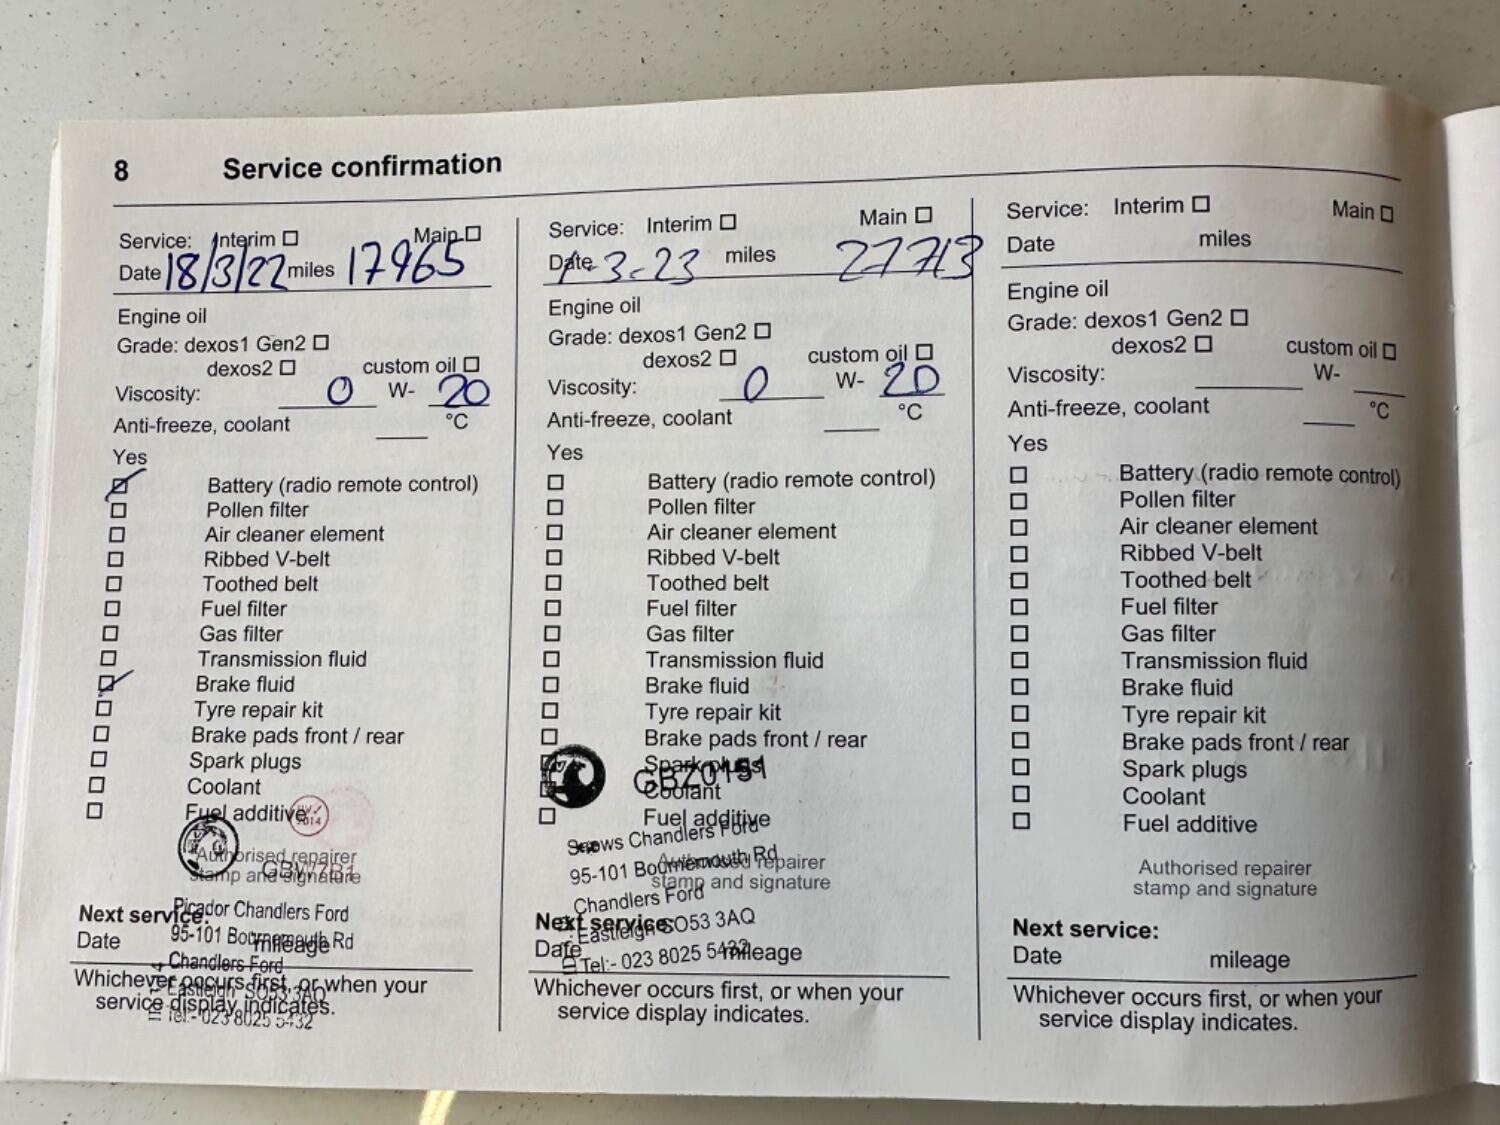 8 Service confirmation
Service: Interim Main
Date 18/3/22 miles 17965
Engine oil
Grade: dexos1 Gen2
dexos2 custom oil
Viscosity: 0 W- 20
Anti-freeze, coolant °C
Yes
Battery (radio remote control)
Pollen filter
Air cleaner element
Ribbed V-belt
Toothed belt
Fuel filter
Gas filter
Transmission fluid
Brake fluid
Tyre repair kit
Brake pads front / rear
Spark plugs
Coolant
Fuel additive
Authorised repairer
stamp and signature
Picador Chandlers Ford
95-101 Bournemouth Rd
Chandlers Ford
Eastleigh SO53 3AQ
Tel:- 023 8025 5432
Next service:
Date mileage
Whichever occurs first, or when your
service display indicates.
Service: Interim Main
Date 1-3-23 miles 27713
Engine oil
Grade: dexos1 Gen2
dexos2 custom oil
Viscosity: 0 W- 20
Anti-freeze, coolant °C
Yes
Battery (radio remote control)
Pollen filter
Air cleaner element
Ribbed V-belt
Toothed belt
Fuel filter
Gas filter
Transmission fluid
Brake fluid
Tyre repair kit
Brake pads front / rear
Spark plugs
GBZ0151
Coolant
Fuel additive
Snows Chandlers Ford
95-101 Bournemouth Rd
Chandlers Ford
Eastleigh SO53 3AQ
Tel:- 023 8025 5432
Authorised repairer
stamp and signature
Next service:
Date mileage
Whichever occurs first, or when your
service display indicates.
Service: Interim Main
Date miles
Engine oil
Grade: dexos1 Gen2
dexos2 custom oil
Viscosity: W-
Anti-freeze, coolant °C
Yes
Battery (radio remote control)
Pollen filter
Air cleaner element
Ribbed V-belt
Toothed belt
Fuel filter
Gas filter
Transmission fluid
Brake fluid
Tyre repair kit
Brake pads front / rear
Spark plugs
Coolant
Fuel additive
Authorised repairer
stamp and signature
Next service:
Date mileage
Whichever occurs first, or when your
service display indicates.